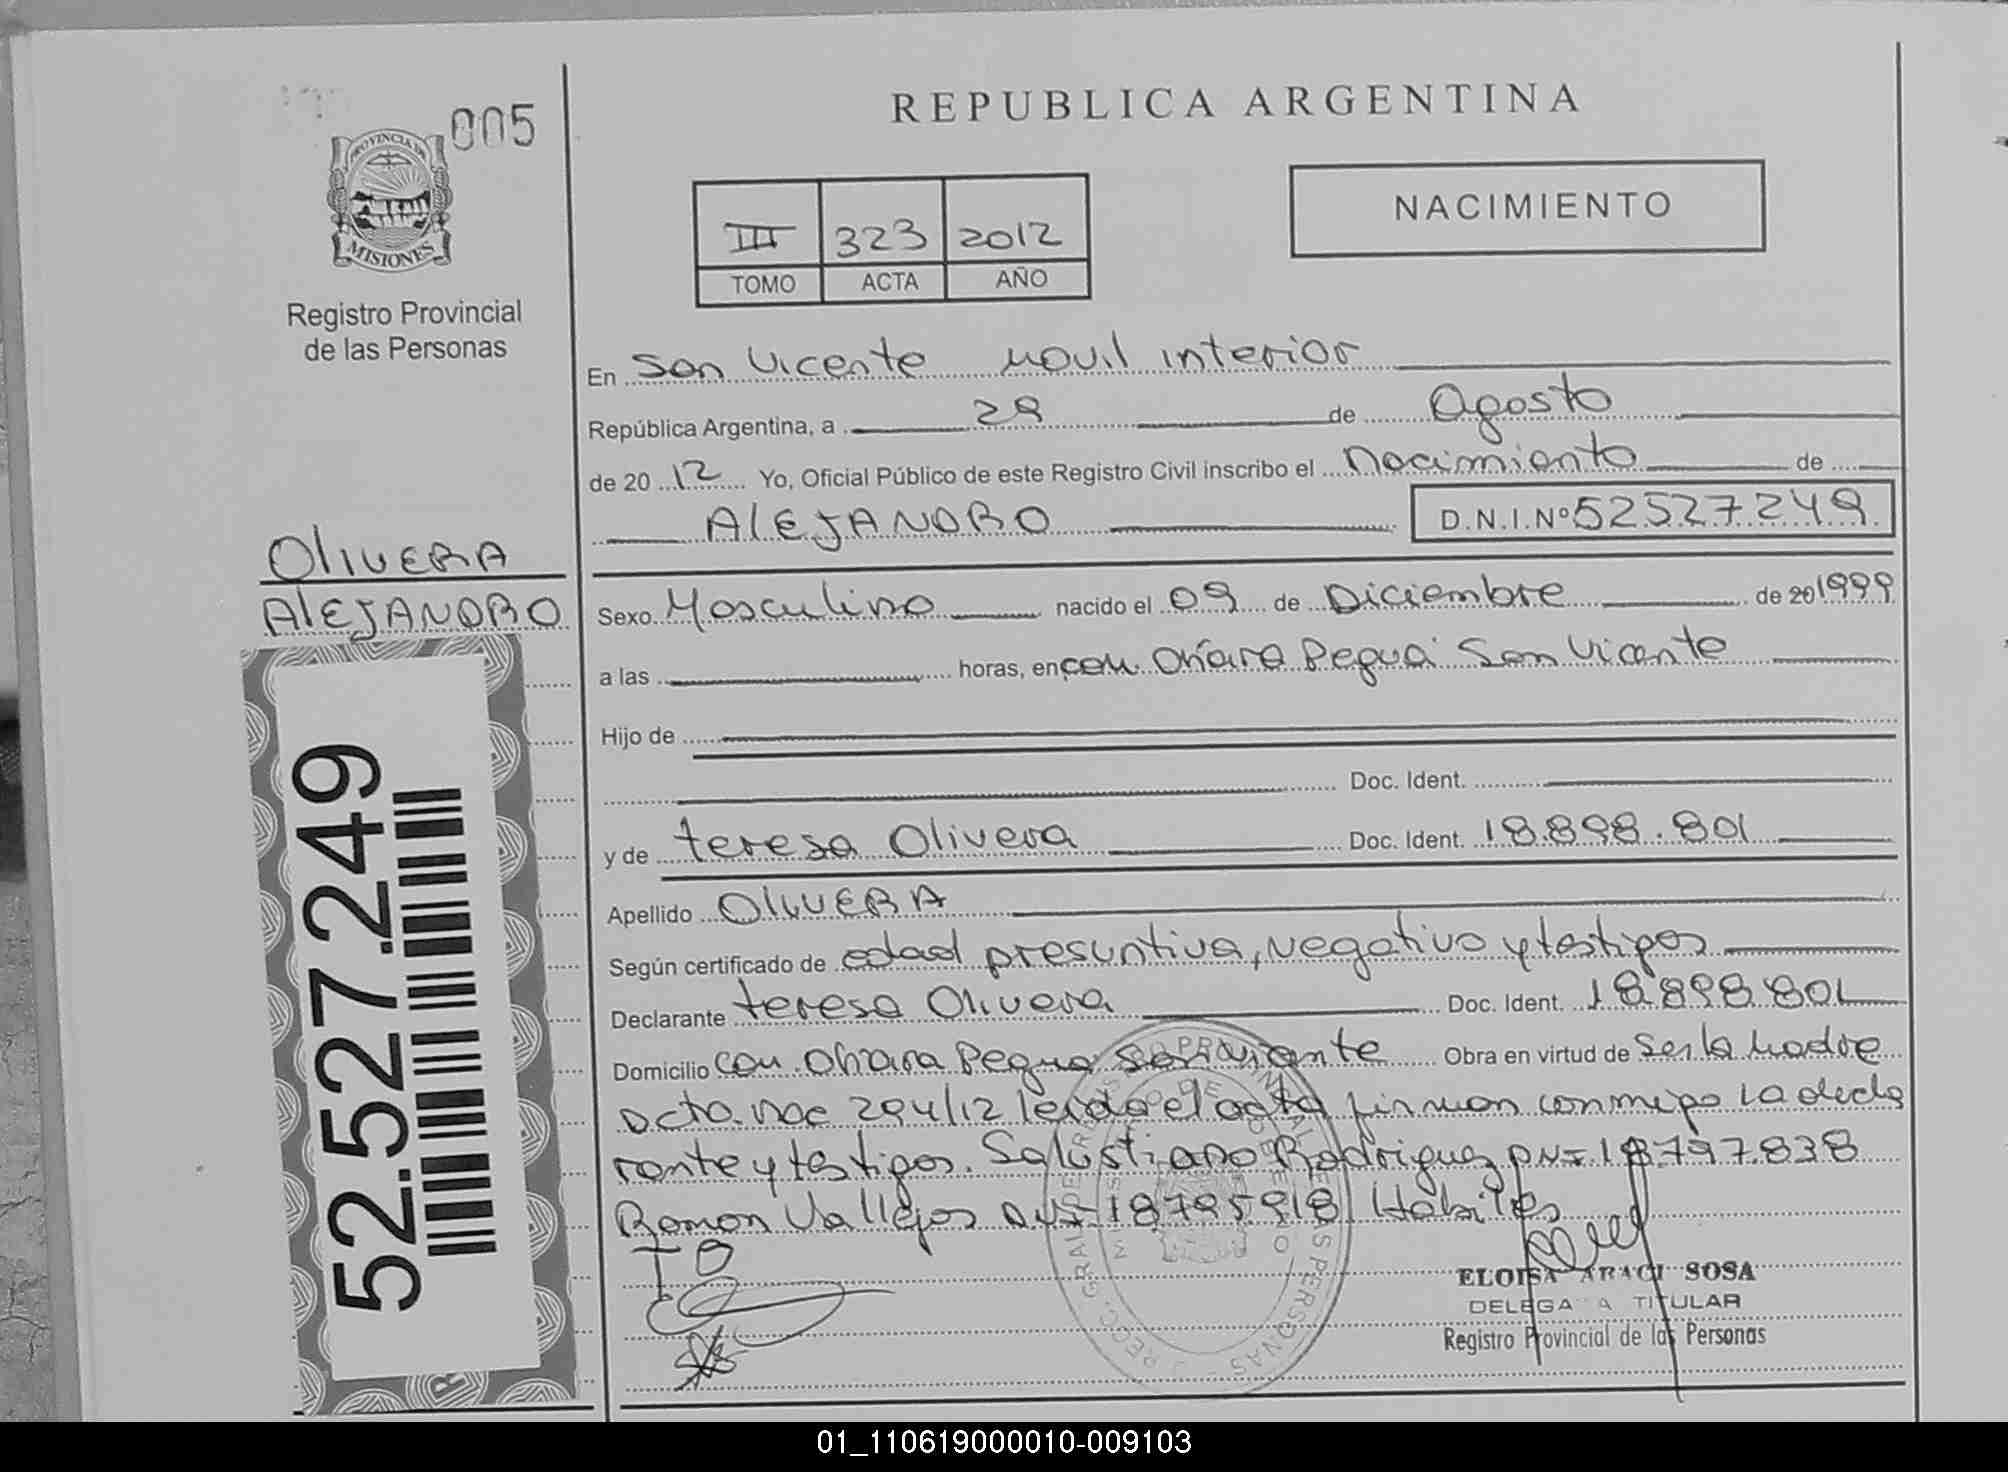 005
PROVINCIA DE
MISIONES
Registro Provincial
de las Personas
REPUBLICA ARGENTINA
III 323 2012
TOMO ACTA AÑO
NACIMIENTO
En San Vicente movil interior
República Argentina, a 29 de Agosto
de 20 12 Yo, Oficial Público de este Registro Civil inscribo el Nacimiento de
ALEJANDRO D.N.I.Nº 52527249
OLIVERA
ALEJANDRO
Sexo Masculino nacido el 09 de Diciembre de 20 1999
a las horas, en com Chafariz Pegua San Vicente
Hijo de
Doc. Ident.
y de teresa Olivera Doc. Ident. 18.898.801
Apellido OLIVERA
Según certificado de edad presuntiva, negativo y testigos
Declarante teresa Olivera Doc. Ident. 18.898.801
Domicilio San Vicente Obra en virtud de Ser la Madre
Dcto. Nac 294/12 leida el acta firman conmigo la decla
rante y testigos. Salustiano Rodriguez DNI 18.797.838
Ramon Vallejos DNI 18795918 Habiles
T O
ELOISA ARACI SOSA
DELEGADA TITULAR
Registro Provincial de las Personas
52.527.249
01_110619000010-009103